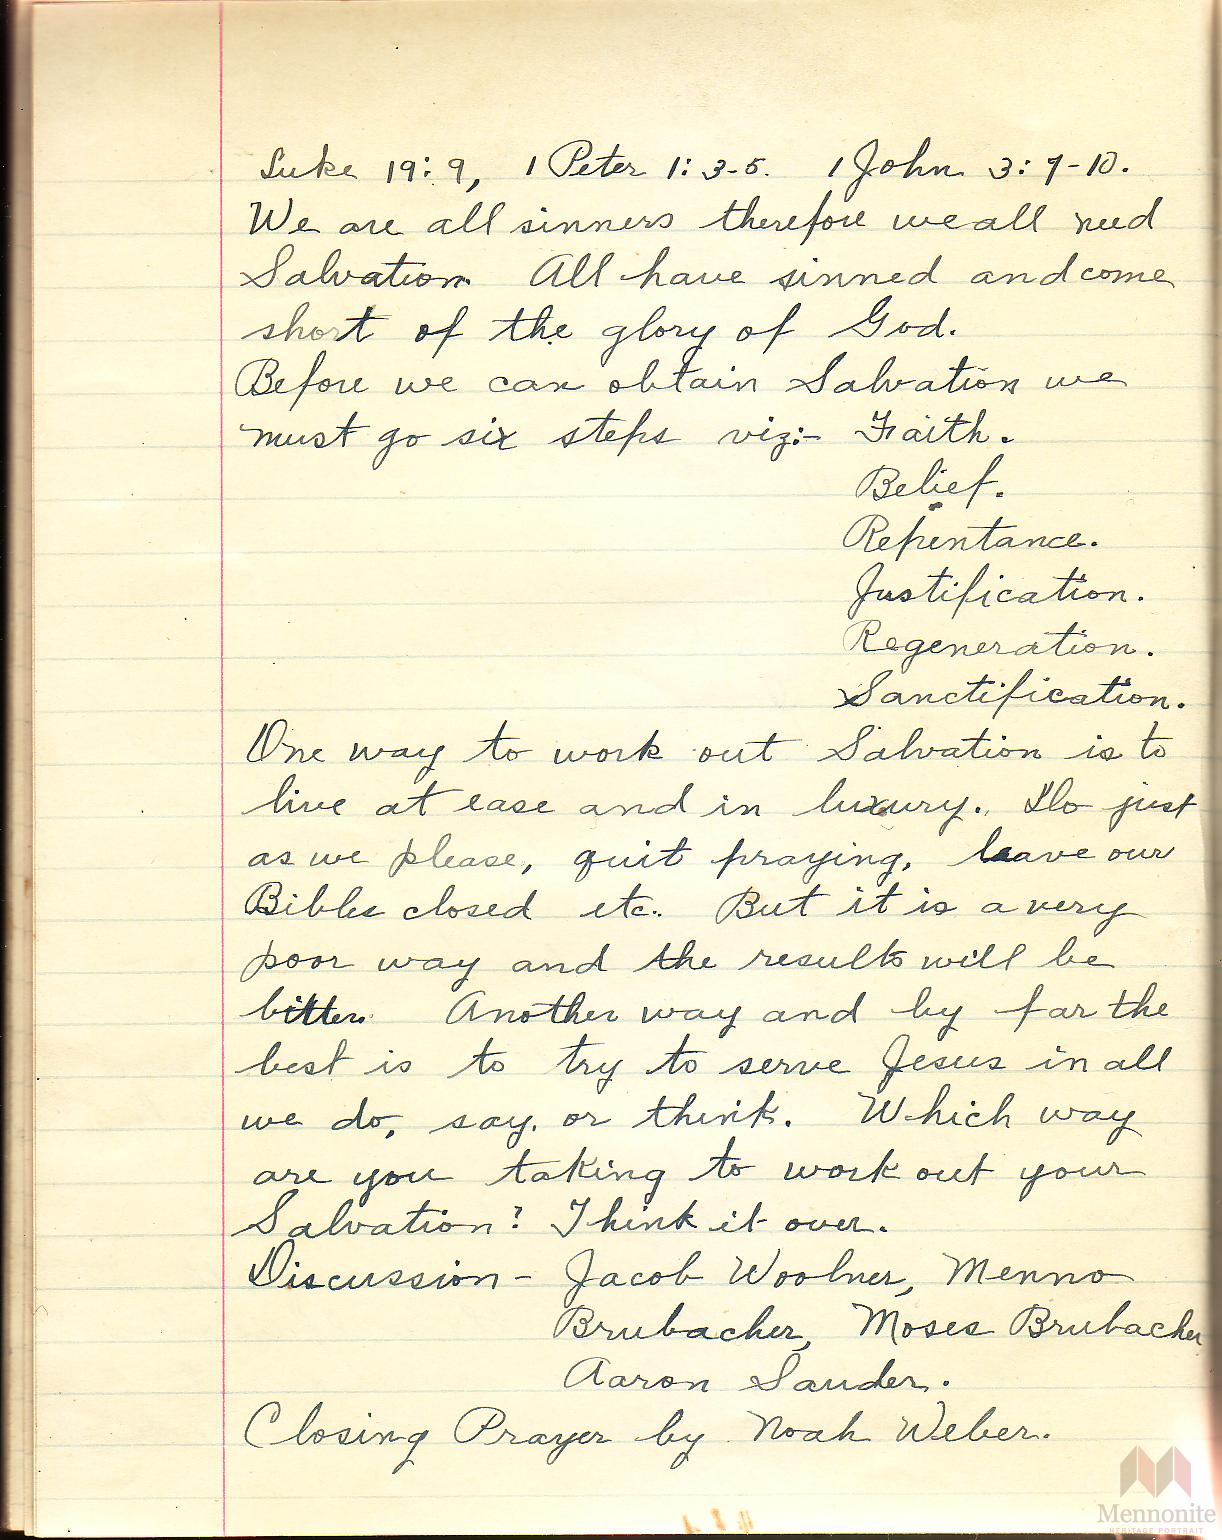 Luke 19:9, 1 Peter 1:3-5. 1 John 3:9-10.
We are all sinners therefore we all need
Salvation. All have sinned and come
short of the glory of God.
Before we can obtain Salvation we
must go six steps viz:- Faith.
Belief.
Repentance.
Justification.
Regeneration.
Sanctification.
One way to work out Salvation is to
live at ease and in luxury. Do just
as we please, quit praying, leave our
Bibles closed etc. But it is a very
poor way and the results will be
bitter. Another way and by far the
best is to try to serve Jesus in all
we do, say, or think. Which way
are you taking to work out your
Salvation? Think it over.
Discussion - Jacob Woolner, Menno
Brubacher, Moses Brubacher
Aaron Sauder.
Closing Prayer by Noah Weber.
Mennonite
HERITAGE PORTRAIT